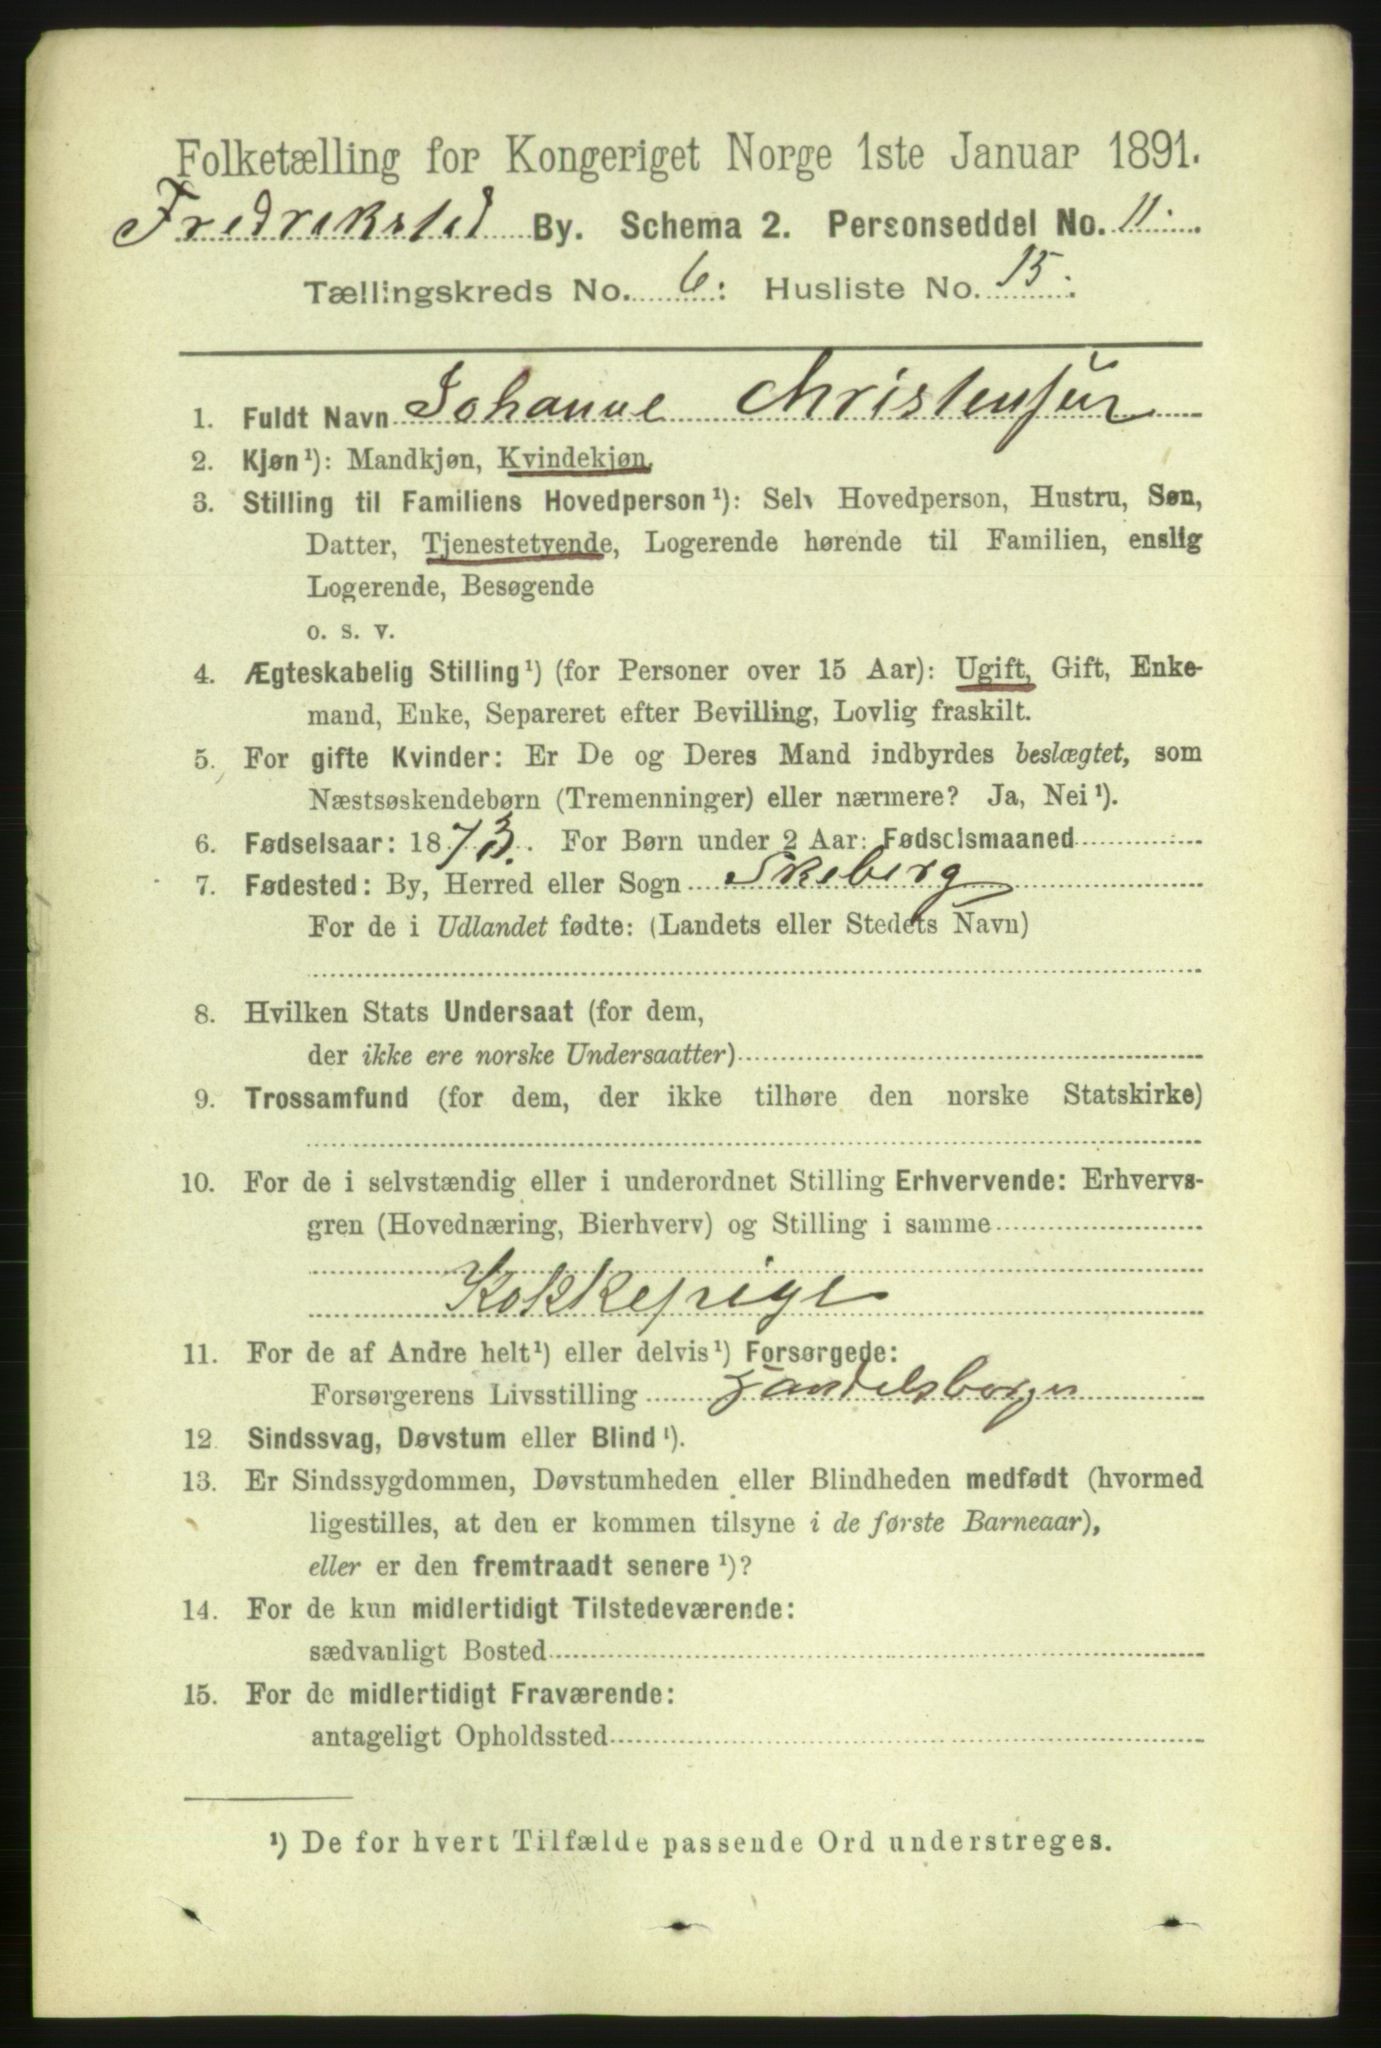 Folketælling for Kongeriget Norge 1ste Januar 1891.
Fredriksted By. Schema 2. Personseddel No. 11.
Tællingskreds No. 6: Husliste No. 15.
1. Fuldt Navn Johanne Christensen
2. Kjøn¹): Mandkjøn, Kvindekjøn.
3. Stilling til Familiens Hovedperson¹): Selv Hovedperson, Hustru, Søn,
Datter, Tjenestetyende, Logerende hørende til Familien, enslig
Logerende, Besøgende
o. s. v.
4. Ægteskabelig Stilling¹) (for Personer over 15 Aar): Ugift, Gift, Enke-
mand, Enke, Separeret efter Bevilling, Lovlig fraskilt.
5. For gifte Kvinder: Er De og Deres Mand indbyrdes beslægtet, som
Næstsøskendebørn (Tremenninger) eller nærmere? Ja, Nei¹).
6. Fødselsaar: 1873. For Børn under 2 Aar: Fødselsmaaned
7. Fødested: By, Herred eller Sogn Skeberg
For de i Udlandet fødte: (Landets eller Stedets Navn)
8. Hvilken Stats Undersaat (for dem,
der ikke ere norske Undersaatter)
9. Trossamfund (for dem, der ikke tilhøre den norske Statskirke)
10. For de i selvstændig eller i underordnet Stilling Erhvervende: Erhvervs-
gren (Hovednæring, Bierhverv) og Stilling i samme
Kokkepige
11. For de af Andre helt¹) eller delvis¹) Forsørgede:
Forsørgerens Livsstilling Handelsborger
12. Sindssvag, Døvstum eller Blind¹).
13. Er Sindssygdommen, Døvstumheden eller Blindheden medfødt (hvormed
ligestilles, at den er kommen tilsyne i de første Barneaar),
eller er den fremtraadt senere¹)?
14. For de kun midlertidigt Tilstedeværende:
sædvanligt Bosted
15. For de midlertidigt Fraværende:
antageligt Opholdssted
¹) De for hvert Tilfælde passende Ord understreges.